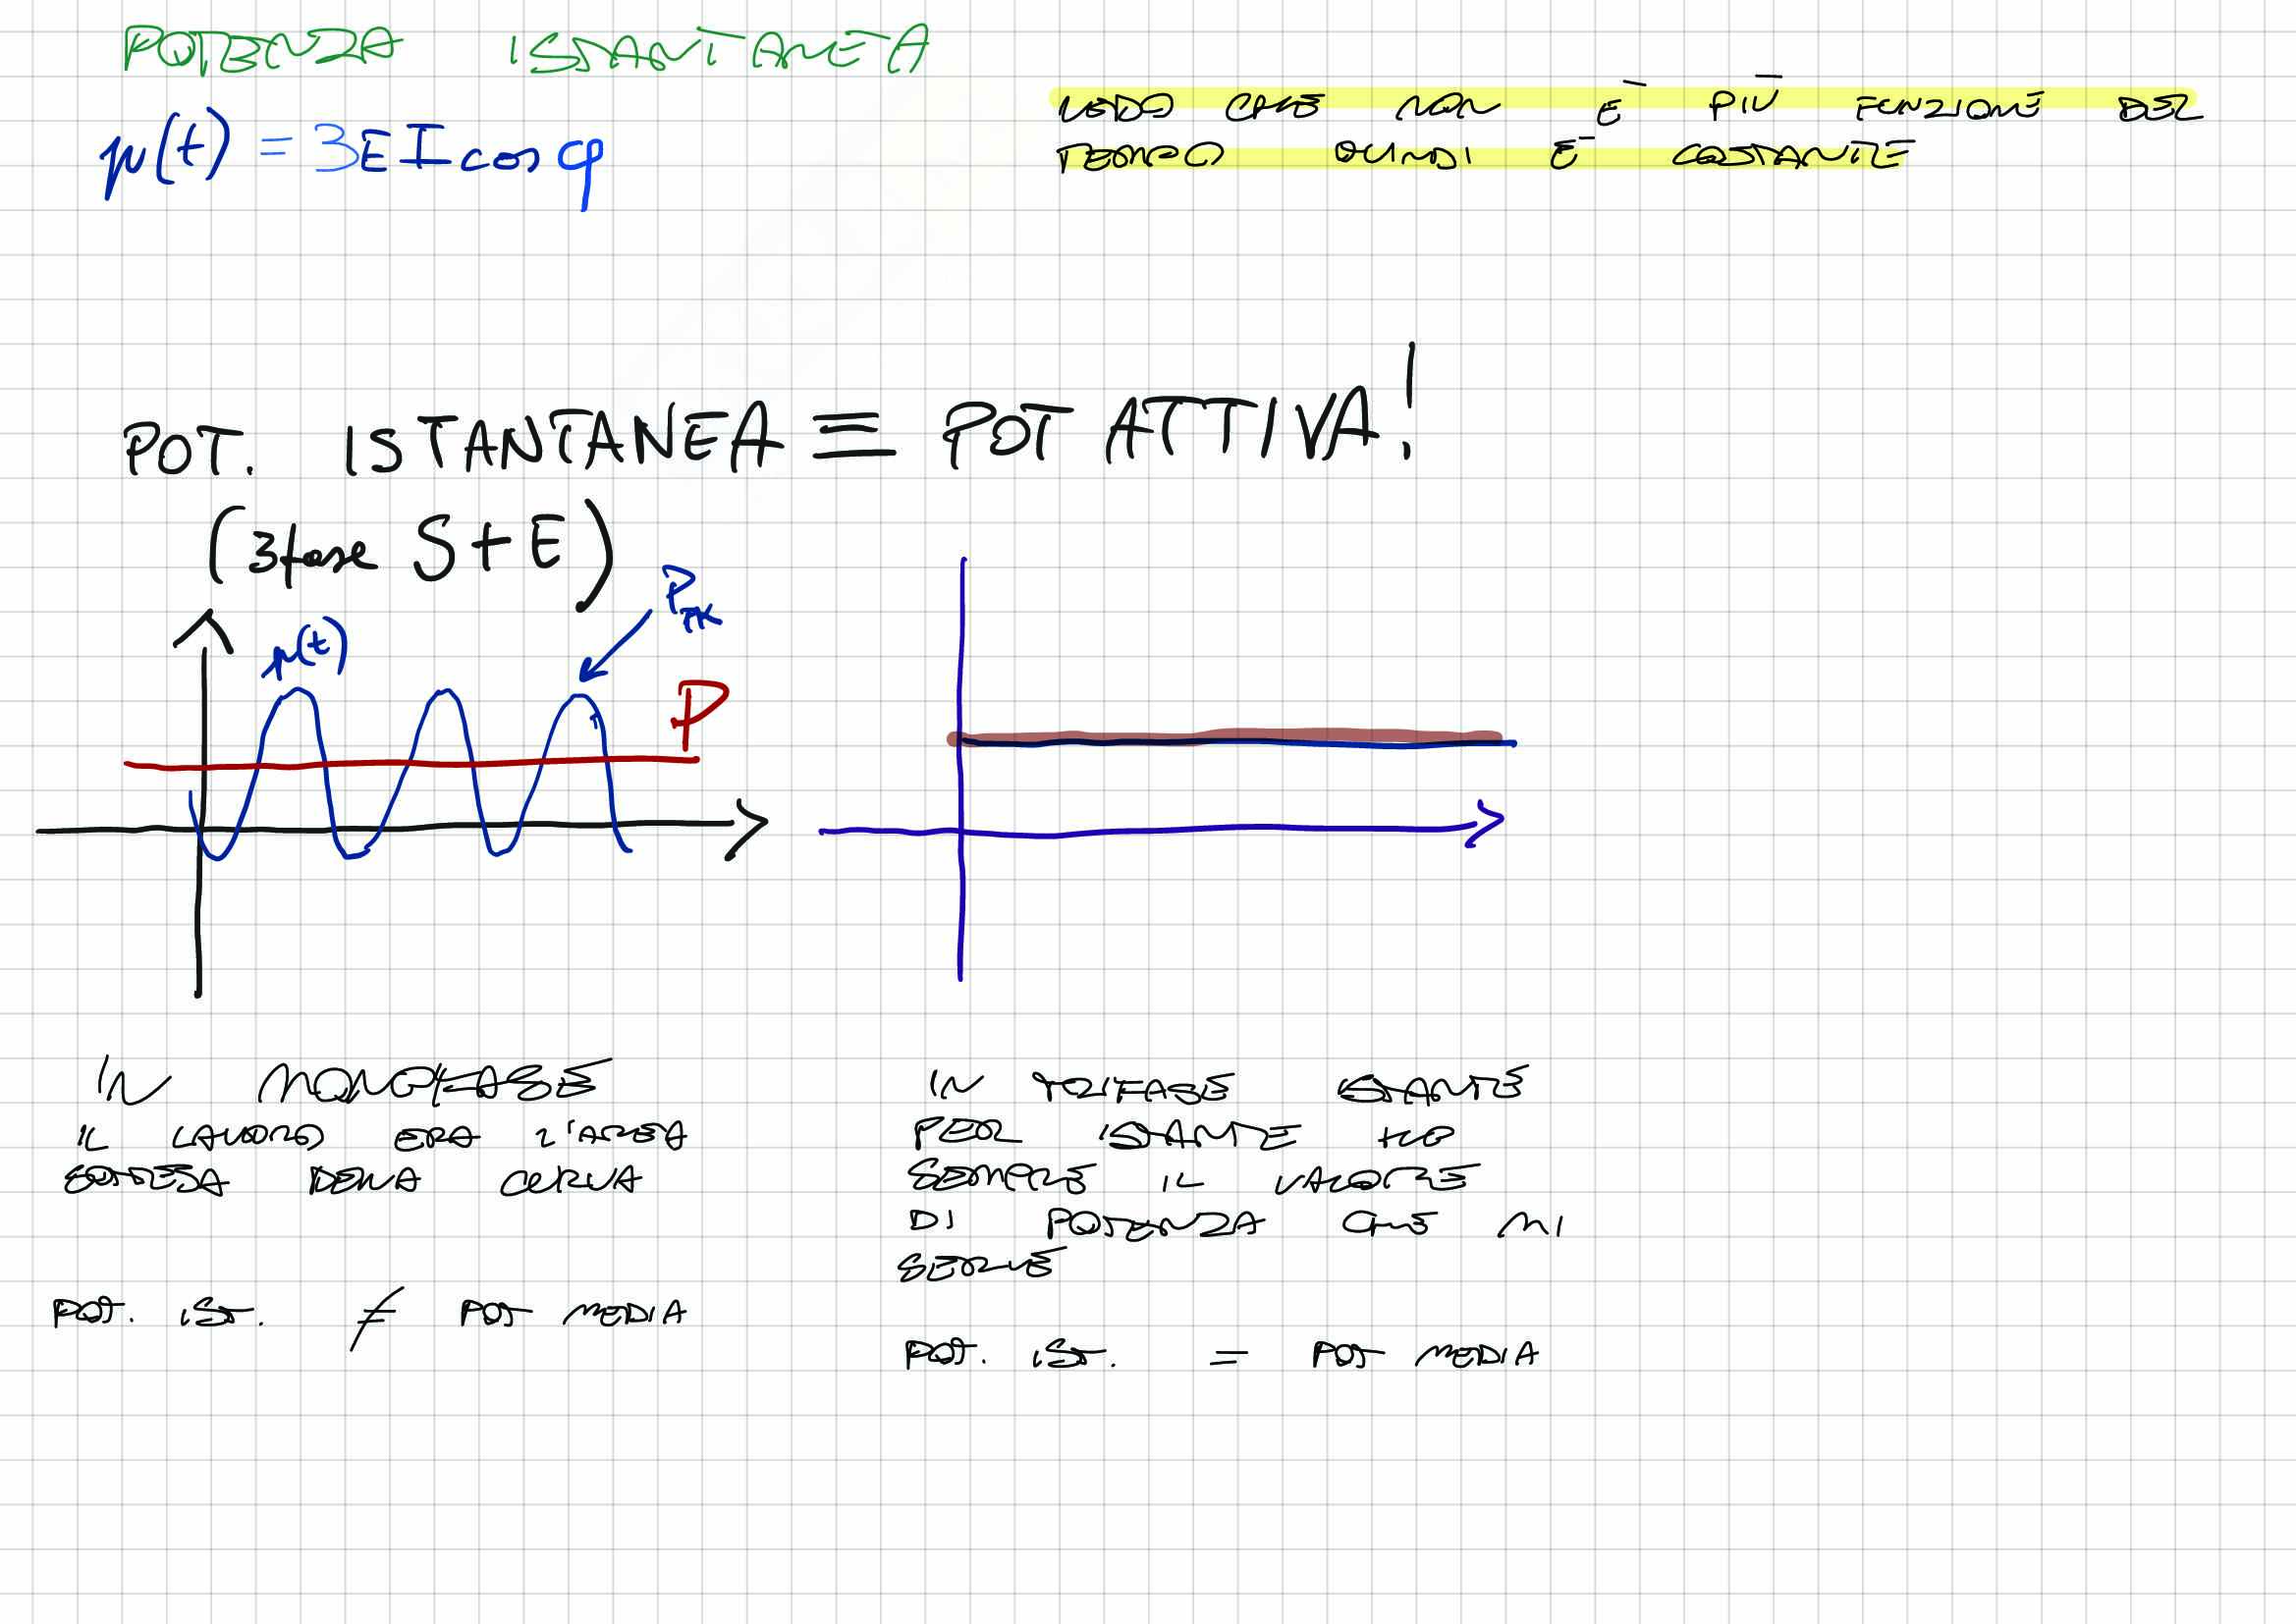 POTENZA ISTANTANEA
p(t) = 3EI cos φ
VEDO CHE NON E' PIÙ FUNZIONE DEL
TEMPO QUINDI E' COSTANTE
POT. ISTANTANEA ≡ POT ATTIVA!
(3fase S+E)
p(t)
P_PK
P
IN MONOFASE
IL LAVORO ERA L'AREA
SOTTESA DELLA CURVA
POT. IST. ≠ POT MEDIA
IN TRIFASE ISTANTE
PER ISTANTE HO
SEMPRE IL VALORE
DI POTENZA CHE MI
SERVE
POT. IST. = POT MEDIA